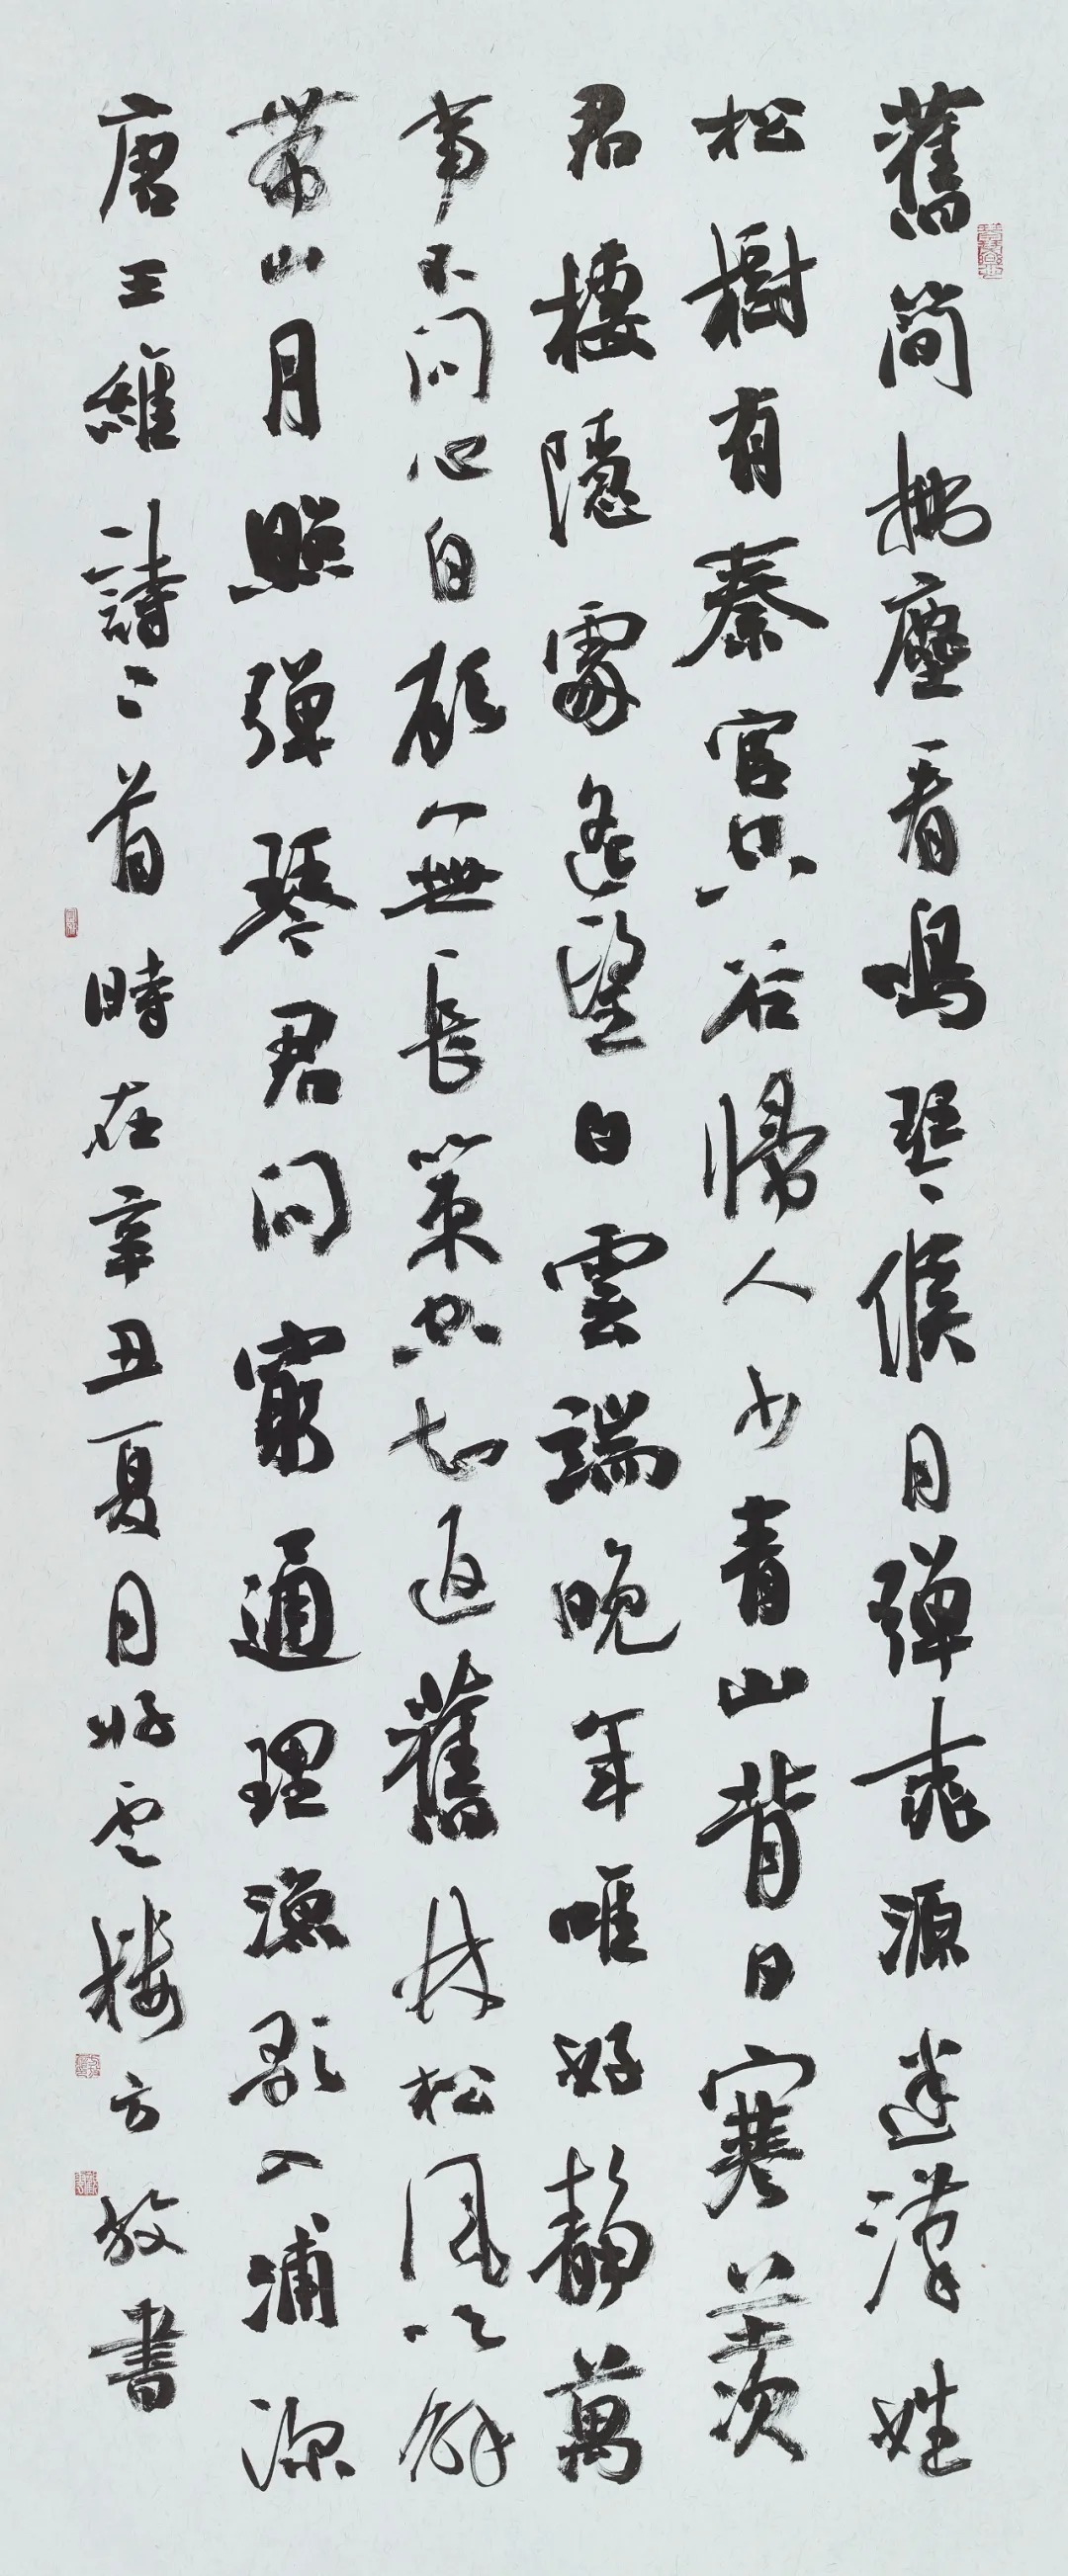 舊簡拂塵看鳴琴候月彈桃源迷漢姓
松樹有秦官空谷歸人少青山背日寒羨
君棲隱處遙望白雲端晚年唯好靜萬
事不關心自顧無長策空知返舊林松風吹解
帶山月照彈琴君問窮通理漁歌入浦深
唐王維詩二首時在辛丑夏月好雲樓方放書